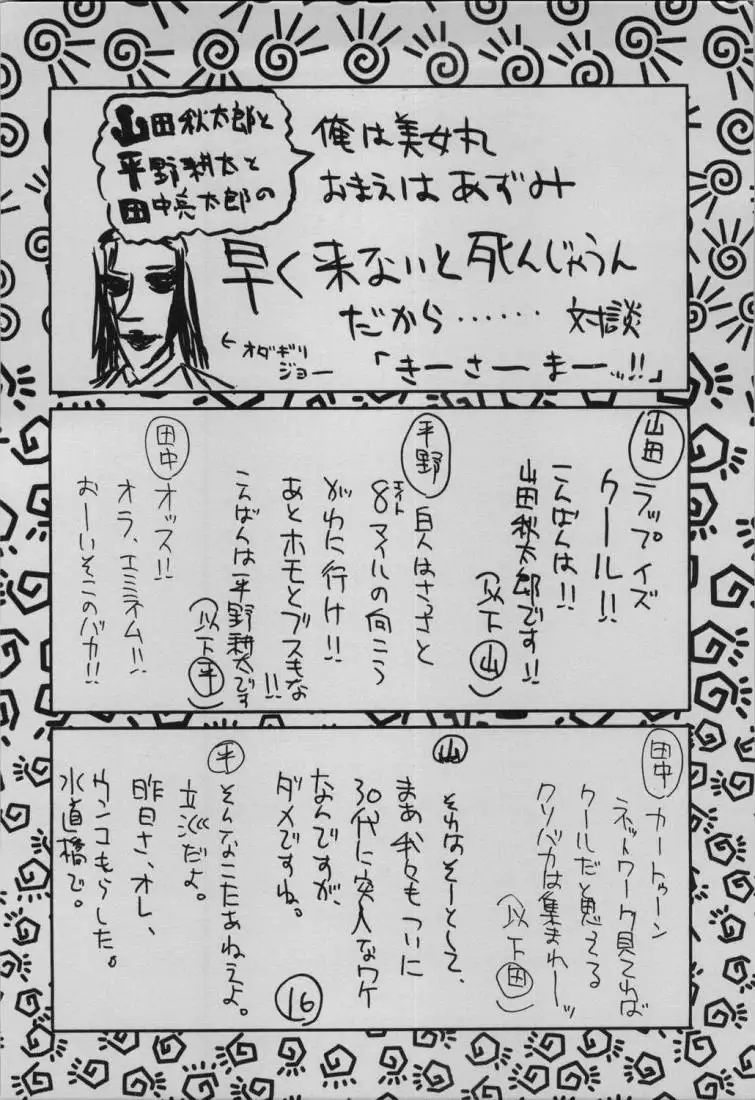 山田秋太郎と
平野耕太と
田中亮太郎の
俺は美女丸
おまえはあずみ
早く来ないと死んじゃうん
だから‥‥‥対談
「きーさーまーッ!!」
←オダギリ
ジョー
山田
ラップイズ
クール!!
こんばんは!!
山田秋太郎です!!
(以下山)
平野
白人はさっさと
8マイルの向こう
エイト
がわに行け!!
あとホモとブスもな!!
こんばんは平野耕太です
(以下平)
田中
オッス!!
オラ、エミネム!!
おーいそこのバカ!!
田中
カートゥーン
ネットワーク見てれば
クールだと思える
クソバカは集まれーッ
(以下田)
山
それはそーとして、
まあ我々もついに
30代に突入なワケ
なんですが、
ダメですね。
平
そんなこたあねえよ。
立派だよ。
昨日さ、オレ、
ウンコもらした。
水道橋で。
16